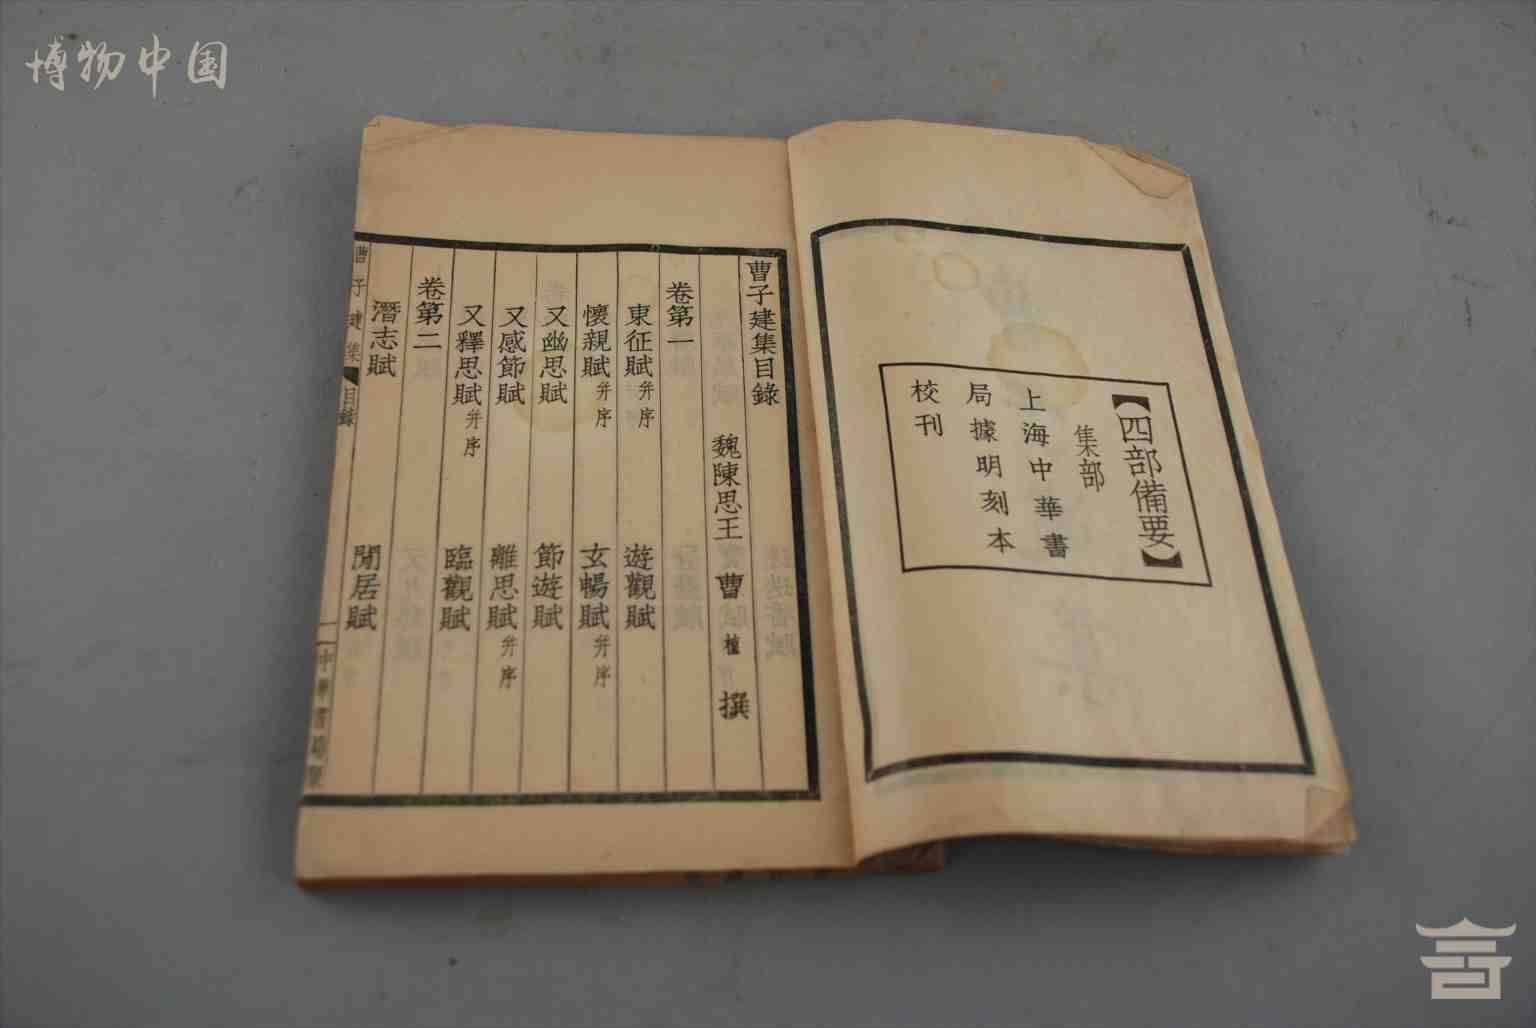 博物中国
【四部備要】
集部
上海中華書
局據明刻本
校刊
曹子建集目錄
魏陳思王 曹 植 撰
卷第一
東征賦 并序 遊觀賦
懷親賦 并序 玄暢賦 并序
又幽思賦 節遊賦
又感節賦 離思賦 并序
又釋思賦 并序 臨觀賦
卷第二
潛志賦 閒居賦
曹子建集 目錄 一 中華書局